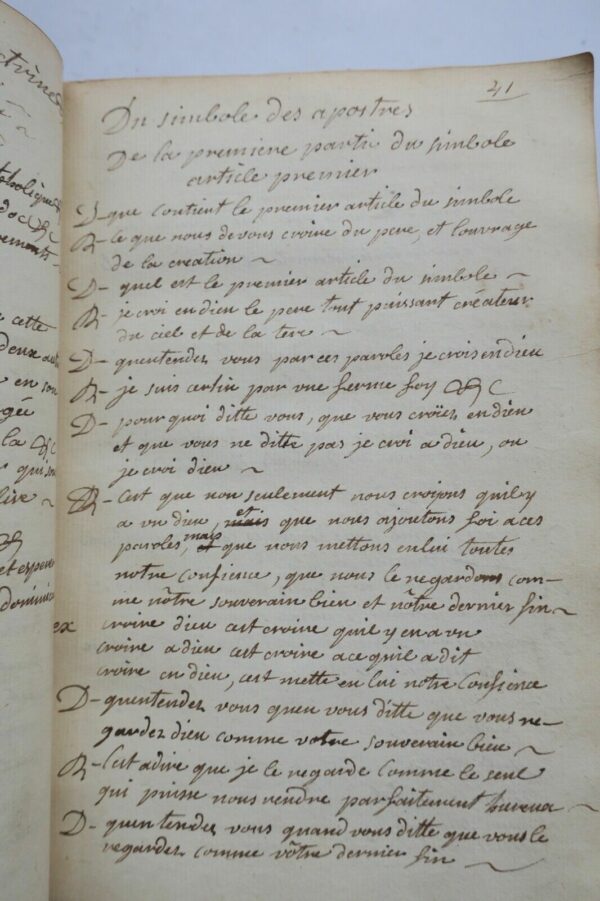 trines
tholique
doc &c
rements
cette
deux aut
en son
gée
la &c
qui son
live
&
et expen
domini
41
Du simbole des apostres
De la premiere parti du simbole
article premier
D - que contient le premier article du simbole
R - ce que nous devons croire du pere, et l'ouvrage
de la creation ~
D - quel est le premier article du simbole ~
R - je croi en dieu le pere tout puissant créateur
du ciel et de la tere ~
D - quentendez vous par ces paroles je crois en dieu
R - je suis certin par vne ferme foy &c
D - pour quoi ditte vous, que vous croïez en dieu
et que vous ne ditte pas je croi a dieu, ou
je croi dieu ~
R - cest que non seulement nous croïons quil y
a vn dieu, et que nous ajoutons foi a ces
paroles, mais que nous mettons en lui toutes
notre confience, que nous le regardons com-
me nôtre souverain bien et nôtre dernier fin ~
ex croire dieu cest croire quil y en a vn
croire a dieu cest croire a ce quil a dit
croire en dieu, cest mette en lui notre confience
D - quentendez vous quen vous ditte que vous re-
gardez dieu comme votre souverain bien ~
R - Cest adire que je le regarde comme le seul
qui puisse nous rendre parfaitement hureux ~
D - quentendez vous quand vous ditte que vous le
regardez comme vôtre dernier fin ~